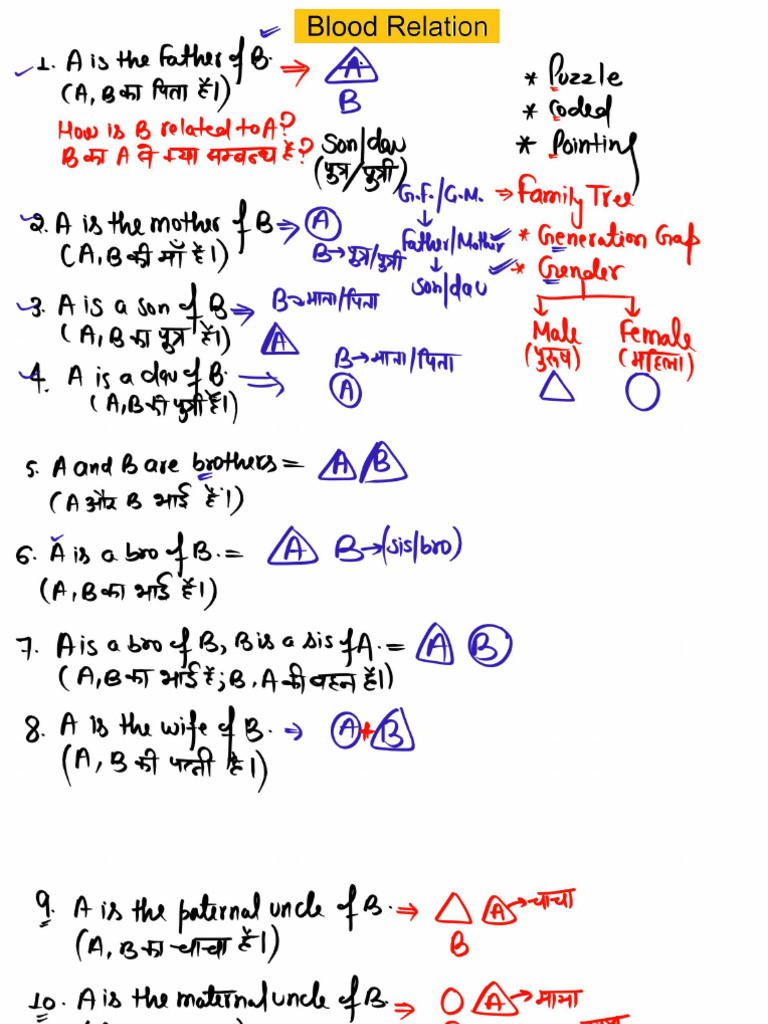 Blood Relation
1. A is the Father of B. ⇒ A
(A, B का पिता है।) B
How is B related to A?
B का A से क्या सम्बन्ध है?
Son/dau
(पुत्र/पुत्री)
* Puzzle
* Coded
* Pointing
G.F./G.M. → Family Tree
↓
Father/Mother
↓
Son/dau
* Generation Gap
* Gender
Male Female
(पुरुष) (महिला)
2. A is the mother of B ⇒ A
(A, B की माँ है।) B→पुत्र/पुत्री
3. A is a son of B ⇒ B→माता/पिता
(A, B का पुत्र है।) A
4. A is a dau of B. ⇒ B→माता/पिता
(A, B की पुत्री है।) A
5. A and B are brothers = A B
(A और B भाई हैं।)
6. A is a bro of B. = A B→(sis/bro)
(A, B का भाई है।)
7. A is a bro of B, B is a sis of A. = A B
(A, B का भाई है; B, A की बहन है।)
8. A is the wife of B. ⇒ A + B
(A, B की पत्नी है।)
9. A is the paternal uncle of B. ⇒ A→चाचा
(A, B का चाचा है।) B
10. A is the maternal uncle of B. ⇒ A→मामा